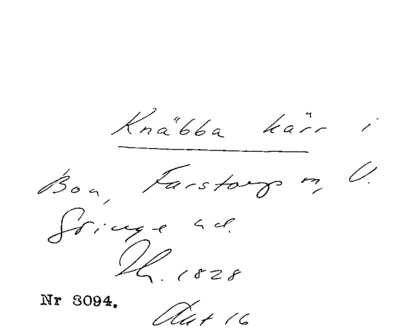 Knäbba kärr i
Boa, Farstorp m, V.
Göinge hd.
Lh. 1828
Nr 3094.
Akt 16